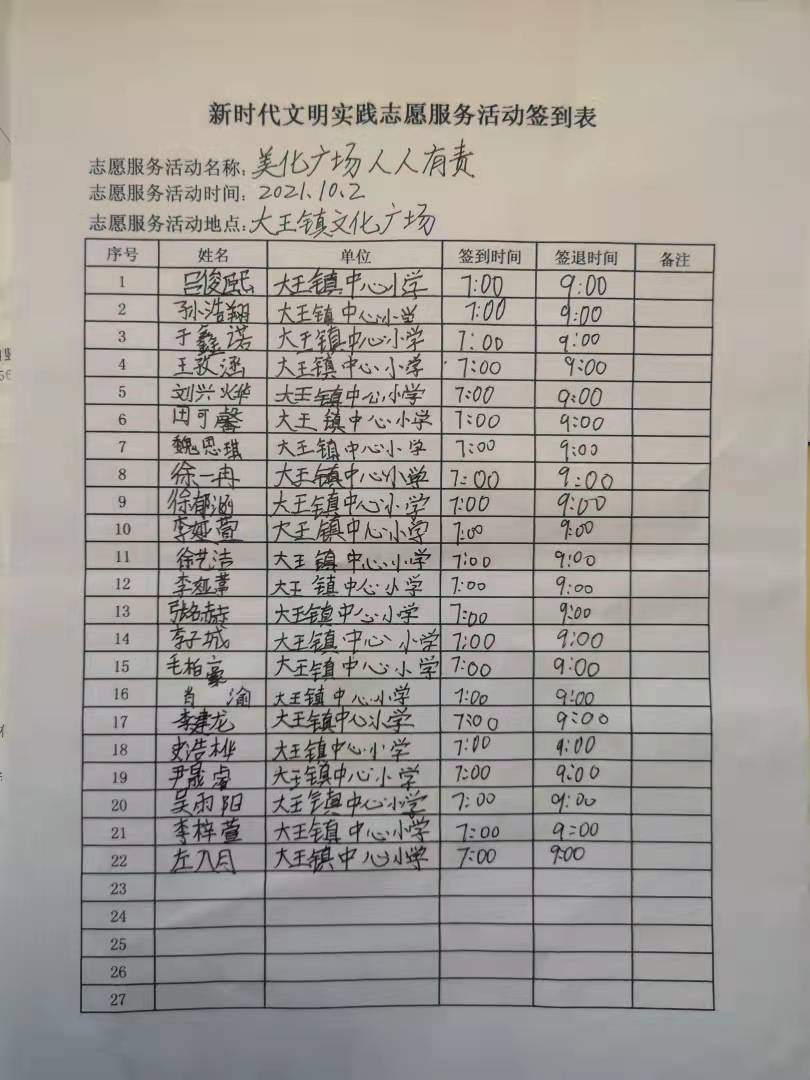 新时代文明实践志愿服务活动签到表
志愿服务活动名称：美化广场人人有责
志愿服务活动时间：2021.10.2
志愿服务活动地点：大王镇文化广场
序号 姓名 单位 签到时间 签退时间 备注
1 吕俊熙 大王镇中心小学 7:00 9:00
2 孙浩翔 大王镇中心小学 7:00 9:00
3 于鑫诺 大王镇中心小学 7:00 9:00
4 王敬涵 大王镇中心小学 7:00 9:00
5 刘兴烨 大王镇中心小学 7:00 9:00
6 田可馨 大王镇中心小学 7:00 9:00
7 魏思琪 大王镇中心小学 7:00 9:00
8 徐一冉 大王镇中心小学 7:00 9:00
9 徐郁涵 大王镇中心小学 7:00 9:00
10 李娅萱 大王镇中心小学 7:00 9:00
11 徐艺洁 大王镇中心小学 7:00 9:00
12 大王镇中心小学 7:00 9:00
13 张铭赫 大王镇中心小学 7:00 9:00
14 李子城 大王镇中心小学 7:00 9:00
15 毛柏豪 大王镇中心小学 7:00 9:00
16 肖渝 大王镇中心小学 7:00 9:00
17 李建龙 大王镇中心小学 7:00 9:00
18 史浩桦 大王镇中心小学 7:00 9:00
19 尹晟睿 大王镇中心小学 7:00 9:00
20 吴雨阳 大王镇中心小学 7:00 9:00
21 李梓萱 大王镇中心小学 7:00 9:00
22 左入月 大王镇中心小学 7:00 9:00
23
24
25
26
27